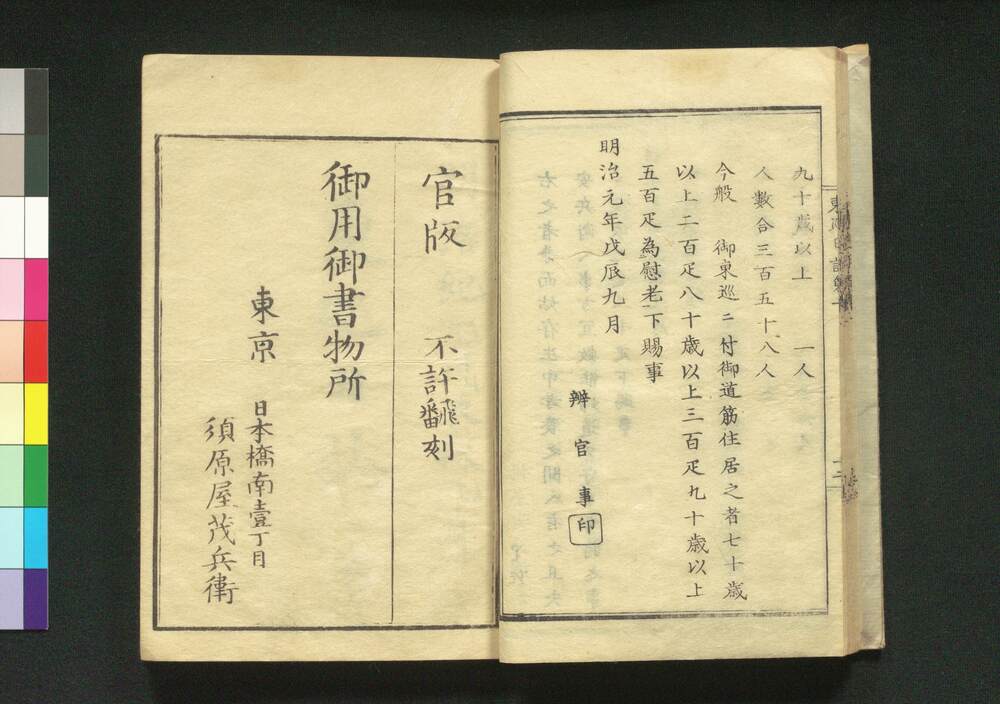 九十歳以上　一人
人数合三百五十八人
今般　御東巡ニ付御道筋住居之者七十歳
以上二百疋八十歳以上三百疋九十歳以上
五百疋為慰老下賜事
明治元年戊辰九月
辨官事印
官版　不許飜刻
御用御書物所
東京　日本橋南壹丁目
須原屋茂兵衛